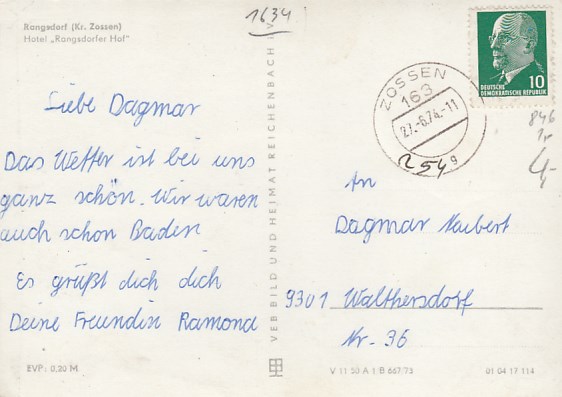 Rangsdorf (Kr. Zossen)
Hotel „Rangsdorfer Hof"
1634
Liebe Dagmar
Das Wetter ist bei uns
ganz schön. Wir waren
auch schon Baden
Es grüßt dich dich
Deine Freundin Ramond
EVP: 0,20 M
VEB BILD UND HEIMAT REICHENBACH I. V.
ZOSSEN
163
27.-6.74.-11
DEUTSCHE
DEMOKRATISCHE REPUBLIK
10
846
4,-
An
Dagmar
9301 Walthersdorf
Nr. 36
V 11 50 A 1 B 667/73
01 04 17 114